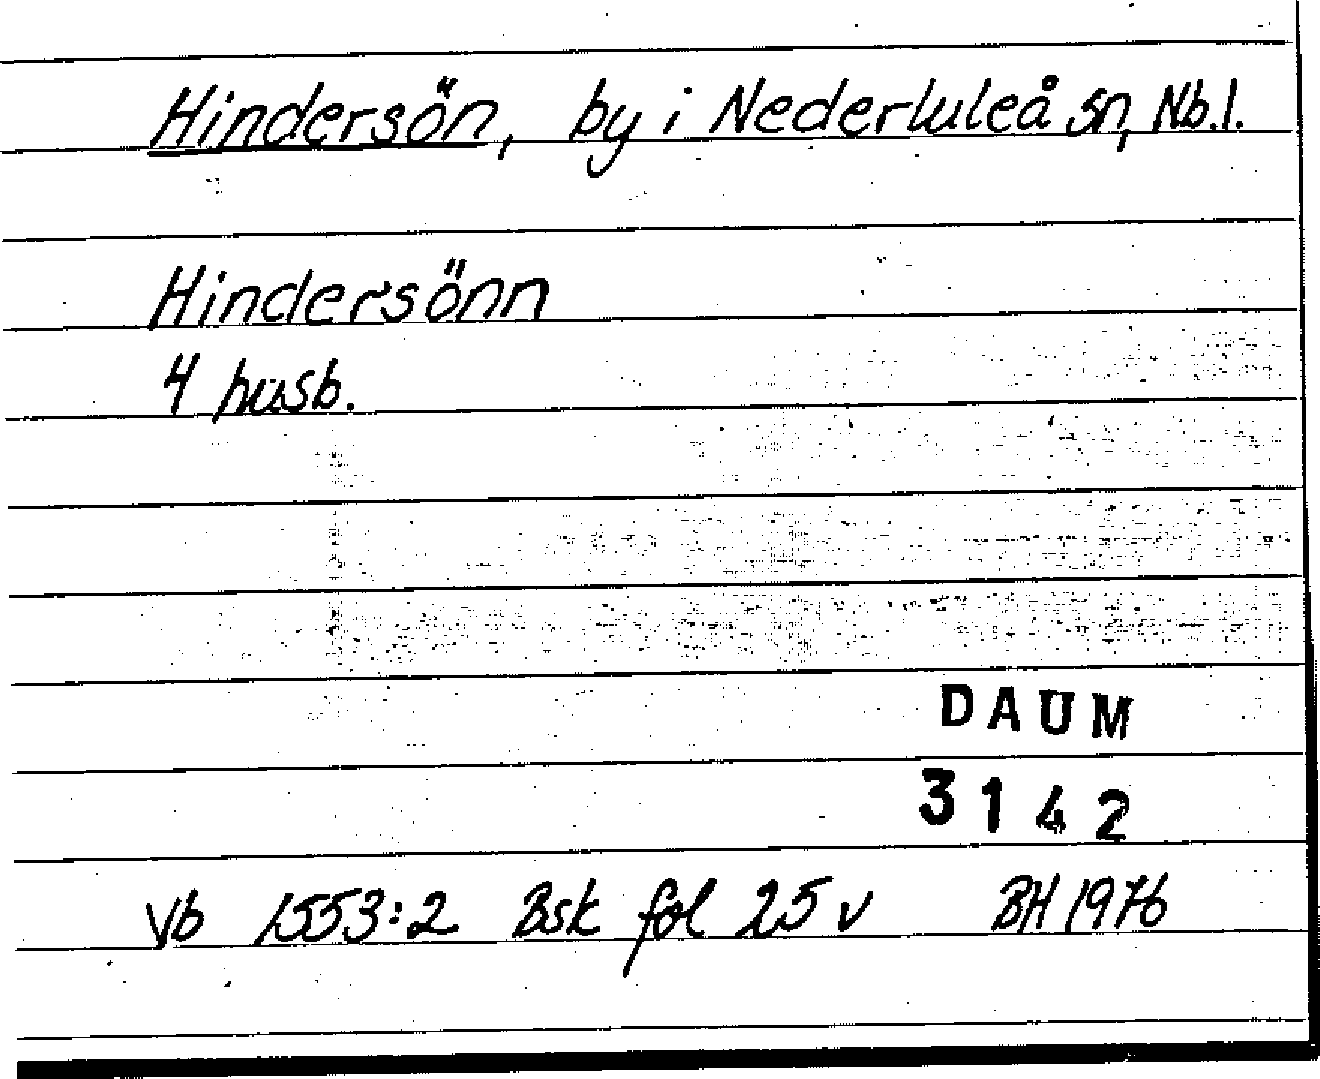 Hindersön, by i Nederluleå sn, Nb.l.
Hindersönn
4 husb.
DAUM
3142
Vb 1553:2 Bsk fol 25 v BH 1976